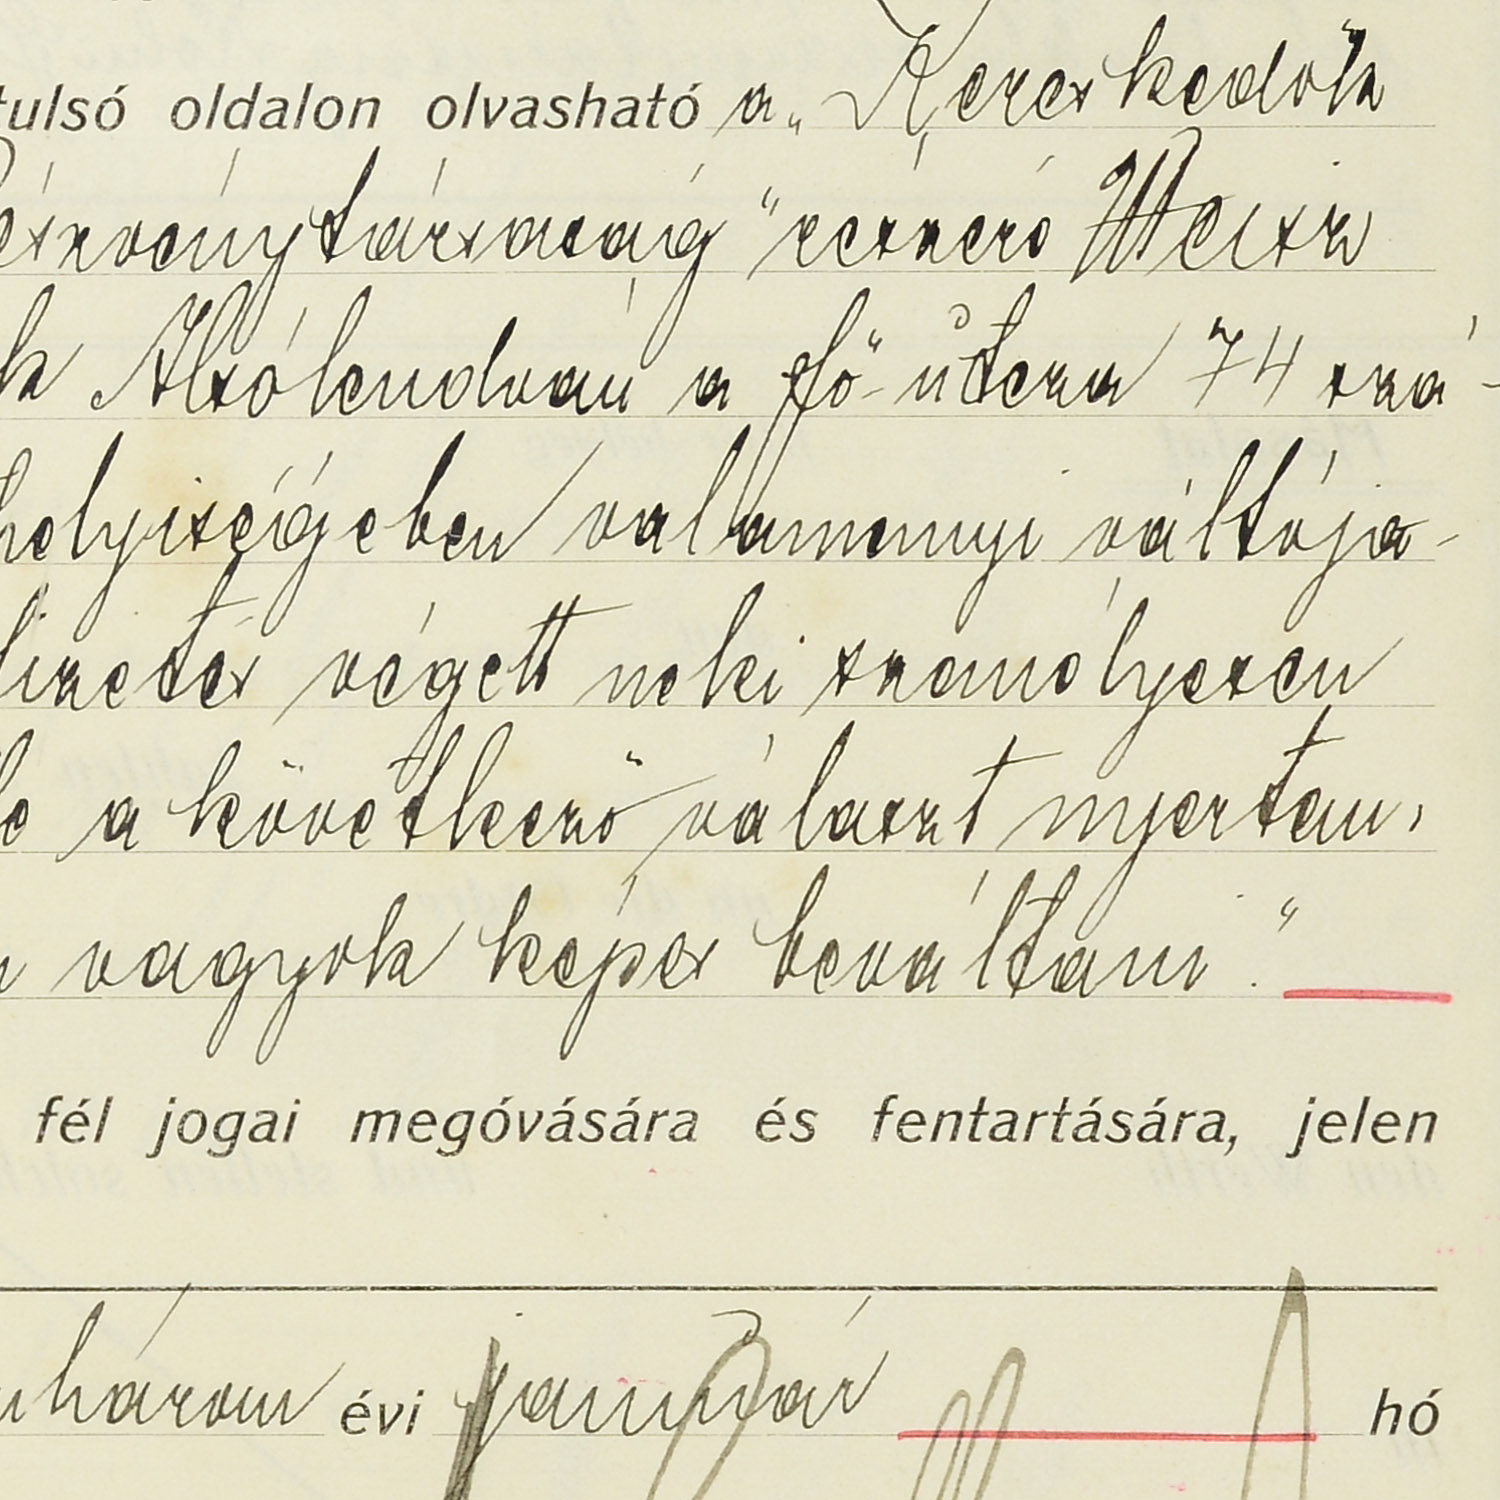 tulsó oldalon olvasható a „Kereskedők
észvénytársaság" részéről Weisz
k Alsólendván a fő-útcza 74 szá-
helyiségében valamennyi váltója-
fizetés végett neki személyesen
le a következő választ nyertem,
vagyok képes beváltani."
fél jogai megóvására és fentartására, jelen
nhárom évi január hó